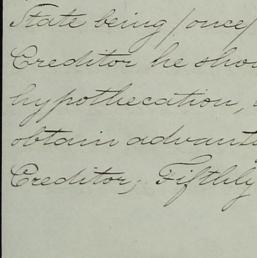 State being /once/
Creditor he sho
hypothecation,
obtain advant
Creditor; Fifthly